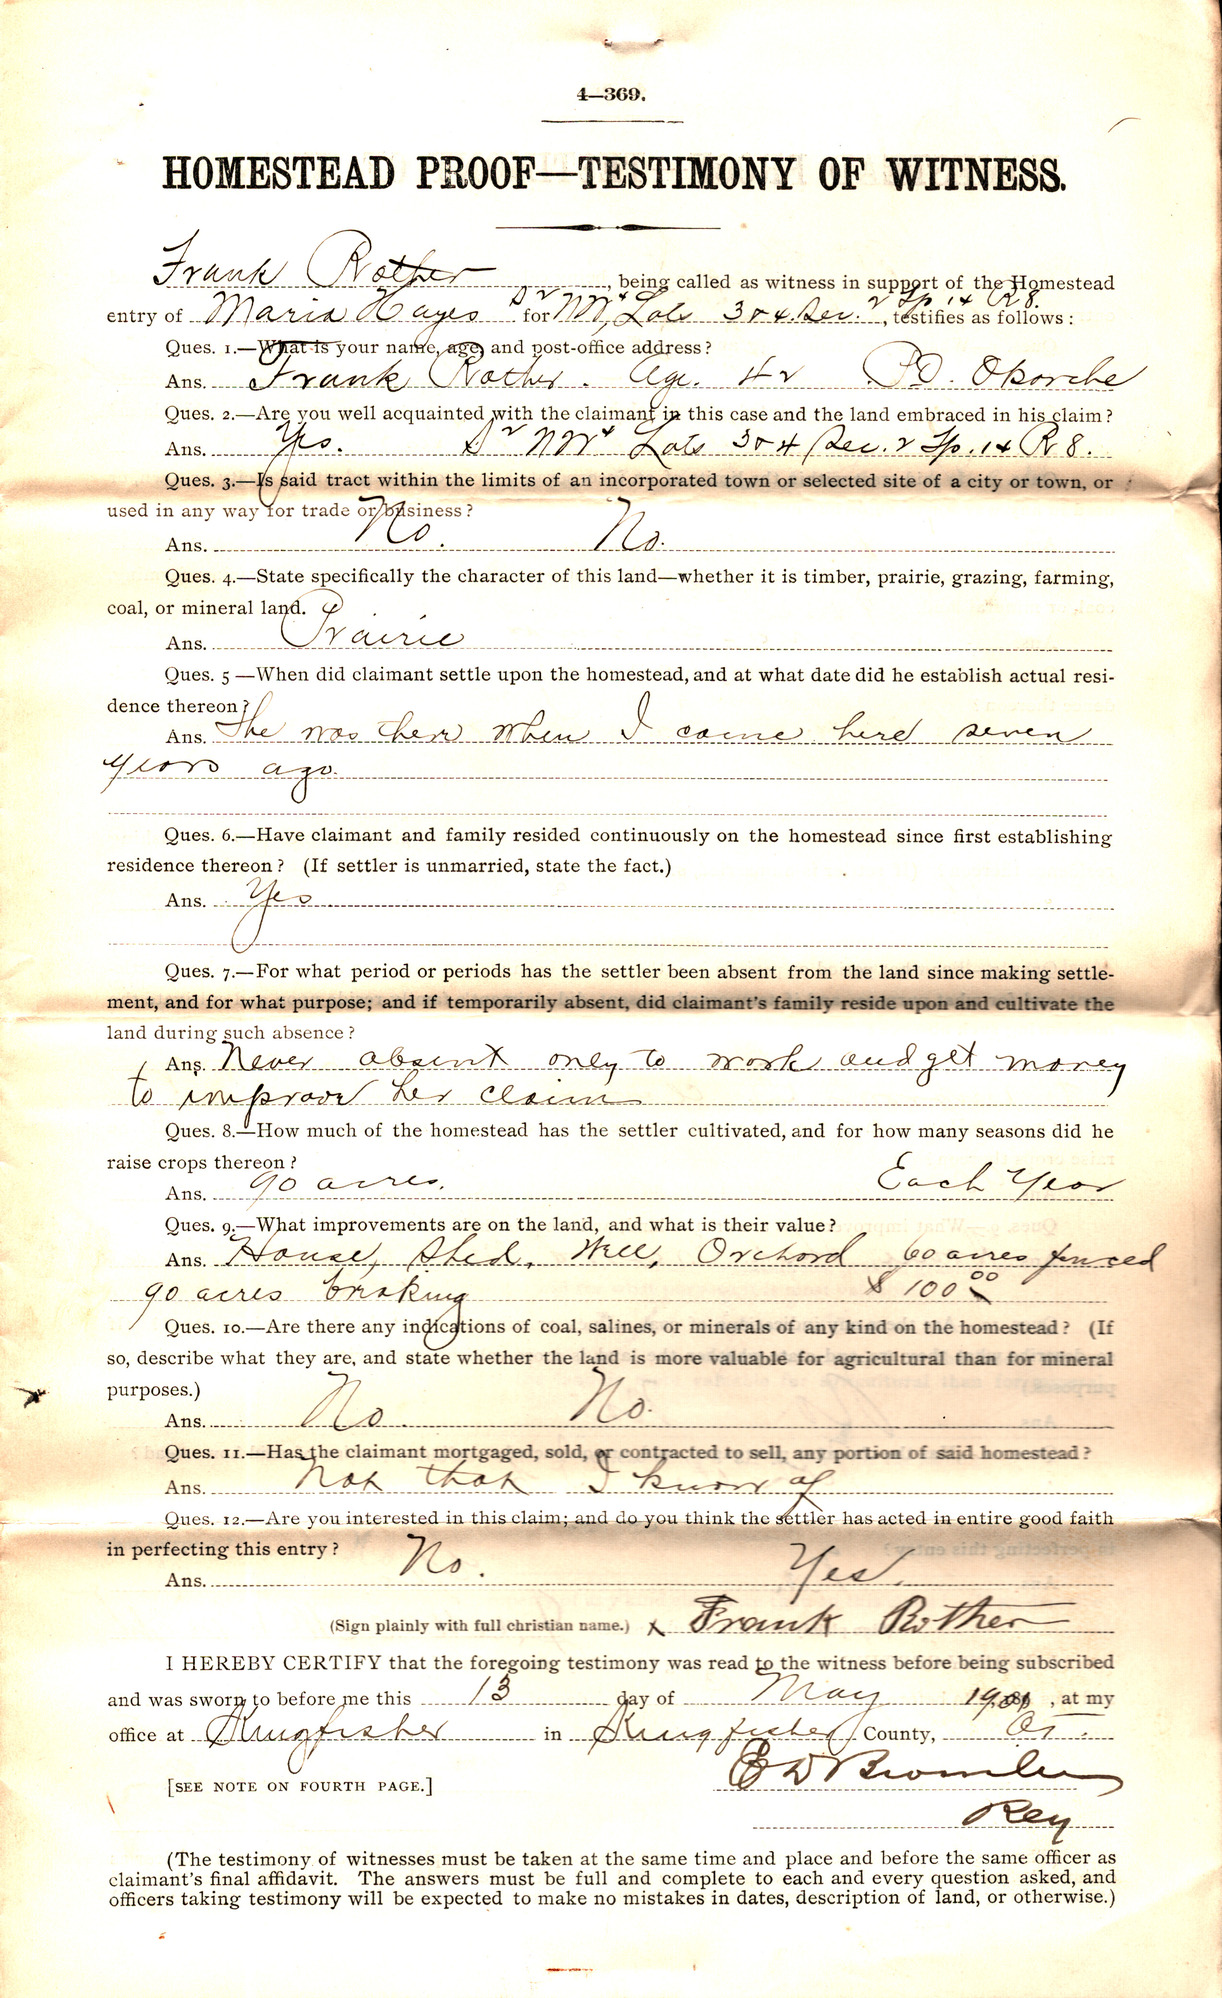 4—369.
HOMESTEAD PROOF—TESTIMONY OF WITNESS.
Frank Rother, being called as witness in support of the Homestead
entry of Maria Hayes for S2 NW4, Lots 3 & 4. Sec. 2 Tp. 14 R 8., testifies as follows:
Ques. 1.—What is your name, age, and post-office address?
Ans. Frank Rother. Age. 42 P.O. Okarche
Ques. 2.—Are you well acquainted with the claimant in this case and the land embraced in his claim?
Ans. Yes. S2 NW4 Lots 3 & 4 Sec. 2 Tp. 14 R 8.
Ques. 3.—Is said tract within the limits of an incorporated town or selected site of a city or town, or
used in any way for trade or business?
Ans. No. No.
Ques. 4.—State specifically the character of this land—whether it is timber, prairie, grazing, farming,
coal, or mineral land.
Ans. Prairie
Ques. 5—When did claimant settle upon the homestead, and at what date did he establish actual resi-
dence thereon?
Ans. She was there when I came here seven
years ago.
Ques. 6.—Have claimant and family resided continuously on the homestead since first establishing
residence thereon? (If settler is unmarried, state the fact.)
Ans. Yes
Ques. 7.—For what period or periods has the settler been absent from the land since making settle-
ment, and for what purpose; and if temporarily absent, did claimant's family reside upon and cultivate the
land during such absence?
Ans. Never absent only to work and get money
to improve her claim
Ques. 8.—How much of the homestead has the settler cultivated, and for how many seasons did he
raise crops thereon?
Ans. 90 acres. Each Year
Ques. 9.—What improvements are on the land, and what is their value?
Ans. House, Shed, Well, Orchard 60 acres fenced
90 acres braking $100.00
Ques. 10.—Are there any indications of coal, salines, or minerals of any kind on the homestead? (If
so, describe what they are, and state whether the land is more valuable for agricultural than for mineral
purposes.)
Ans. No. No.
Ques. 11.—Has the claimant mortgaged, sold, or contracted to sell, any portion of said homestead?
Ans. Not that I know of
Ques. 12.—Are you interested in this claim; and do you think the settler has acted in entire good faith
in perfecting this entry?
Ans. No. Yes.
(Sign plainly with full christian name.) x Frank Rother
I HEREBY CERTIFY that the foregoing testimony was read to the witness before being subscribed
and was sworn to before me this 13 day of May 1901, at my
office at Kingfisher in Kingfisher County, O.T.
[SEE NOTE ON FOURTH PAGE.]
E D Brownlee
Reg
(The testimony of witnesses must be taken at the same time and place and before the same officer as
claimant's final affidavit. The answers must be full and complete to each and every question asked, and
officers taking testimony will be expected to make no mistakes in dates, description of land, or otherwise.)